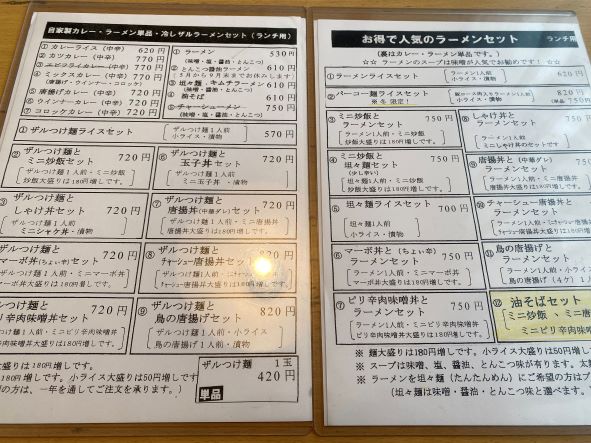 自家製カレー・ラーメン単品・冷しザルラーメンセット（ランチ用）
① カレーライス（中辛） 620円
② カツカレー（中辛） 770円
③ エビフライカレー（中辛） 770円
④ ミックスカレー（中辛） 770円
（唐揚げ・ウインナー・コロッケ）
⑤ 唐揚げカレー（中辛） 720円
⑥ ウインナーカレー（中辛） 720円
⑦ コロッケカレー（中辛） 720円
① ラーメン 530円
（味噌・塩・醤油・とんこつ）
② とんこつ醤油ラーメン 610円
（５月から９月末までお休みします）
③ 坦々麺 キムチラーメン 610円
④ 油そば 610円
⑤ チャーシューメン 750円
（味噌・塩・醤油・とんこつ）
① ザルつけ麺ライスセット
ザルつけ麺１人前
小ライス・漬物
570円
② ザルつけ麺と
ミニ炒飯セット
720円
ザルつけ麺１人前・ミニ炒飯
炒飯大盛りは180円増しです。
⑥ ザルつけ麺と
玉子丼セット
720円
ザルつけ麺１人前
ミニ玉子丼・漬物
③ ザルつけ麺と
しゃけ丼セット
720円
ザルつけ麺１人前
ミニシャケ丼・漬物
⑦ ザルつけ麺と
唐揚丼（中華ダレ）セット
720円
ザルつけ麺１人前・ミニ唐揚丼
唐揚丼大盛りは180円増しです。
ザルつけ麺と
マーボ丼（ちょい辛）セット
720円
ザルつけ麺１人前・ミニマーボ丼
マーボ丼大盛りは180円増しです。
⑧ ザルつけ麺と
チャーシュー唐揚丼セット
820円
ザルつけ麺と
ピリ辛肉味噌丼セット
720円
ザルつけ麺１人前・ミニピリ辛肉味噌丼
⑨ ザルつけ麺と
鳥の唐揚げセット
820円
ザルつけ麺１人前・小ライス
鳥の唐揚げ・漬物
は180円増しです。小ライス大盛りは50円増しです
円増しです。
の方は、一年を通してご注文を承ります。）
ザルつけ麺 １玉
単品 420円
お得で人気のラーメンセット ランチ用
（裏はカレー・ラーメン単品です。）
☆☆ ラーメンのスープは味噌が人気でお勧めです！ ☆☆
① ラーメンライスセット
ラーメン１人前
小ライス・漬物
620円
② パーコー麺ライスセット
※冬 限定！
小ライス・漬物
820円
（単品 750円
③ ミニ炒飯と
ラーメンセット
750円
ラーメン１人前・ミニ炒飯
炒飯大盛りは180円増しです。
⑧ しゃけ丼と
ラーメンセット
ラーメン１人前
ミニしゃけ丼のセットです
④ ミニ炒飯と
坦々麺セット
（少し辛い）
750円
坦々麺１人前・ミニ炒飯
炒飯大盛りは180円増しです。
⑨ 唐揚丼（中華ダレ）と
ラーメンセット
ラーメン１人前・ミニ唐揚
唐揚丼大盛りは180円増しで
⑤ 坦々麺ライスセット
700円
坦々麺１人前
小ライス・漬物
⑩ チャーシュー唐揚丼と
ラーメンセット
⑥ マーボ丼（ちょい辛）と
ラーメンセット
750円
ラーメン１人前・ミニマーボ丼
マーボ丼大盛りは180円増しです。
⑪ 鳥の唐揚げと
ラーメンセット
ラーメン１人前・小ライ
鳥の唐揚げ（4ケ）１人
⑦ ピリ辛肉味噌丼と
ラーメンセット
750円
ラーメン１人前・ミニピリ辛肉味噌丼
ピリ辛肉味噌丼大盛りは180円増しです。
⑫ 油そばセット
ミニ炒飯 、ミニ唐
ミニピリ辛肉味噌
※ 麺大盛りは180円増しです。小ライス大盛りは50円増しで
※ スープは味噌、塩、醤油、とんこつ味が有ります。太麺
※ ラーメンを坦々麺（たんたんめん）にご希望の方はプ
（坦々麺は味噌・醤油・とんこつ味と選べます。